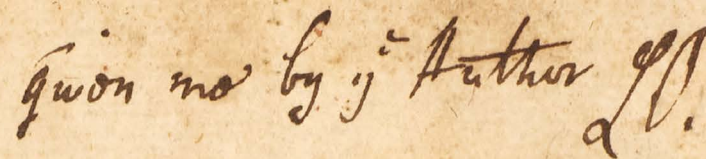 given me by yᵉ Author